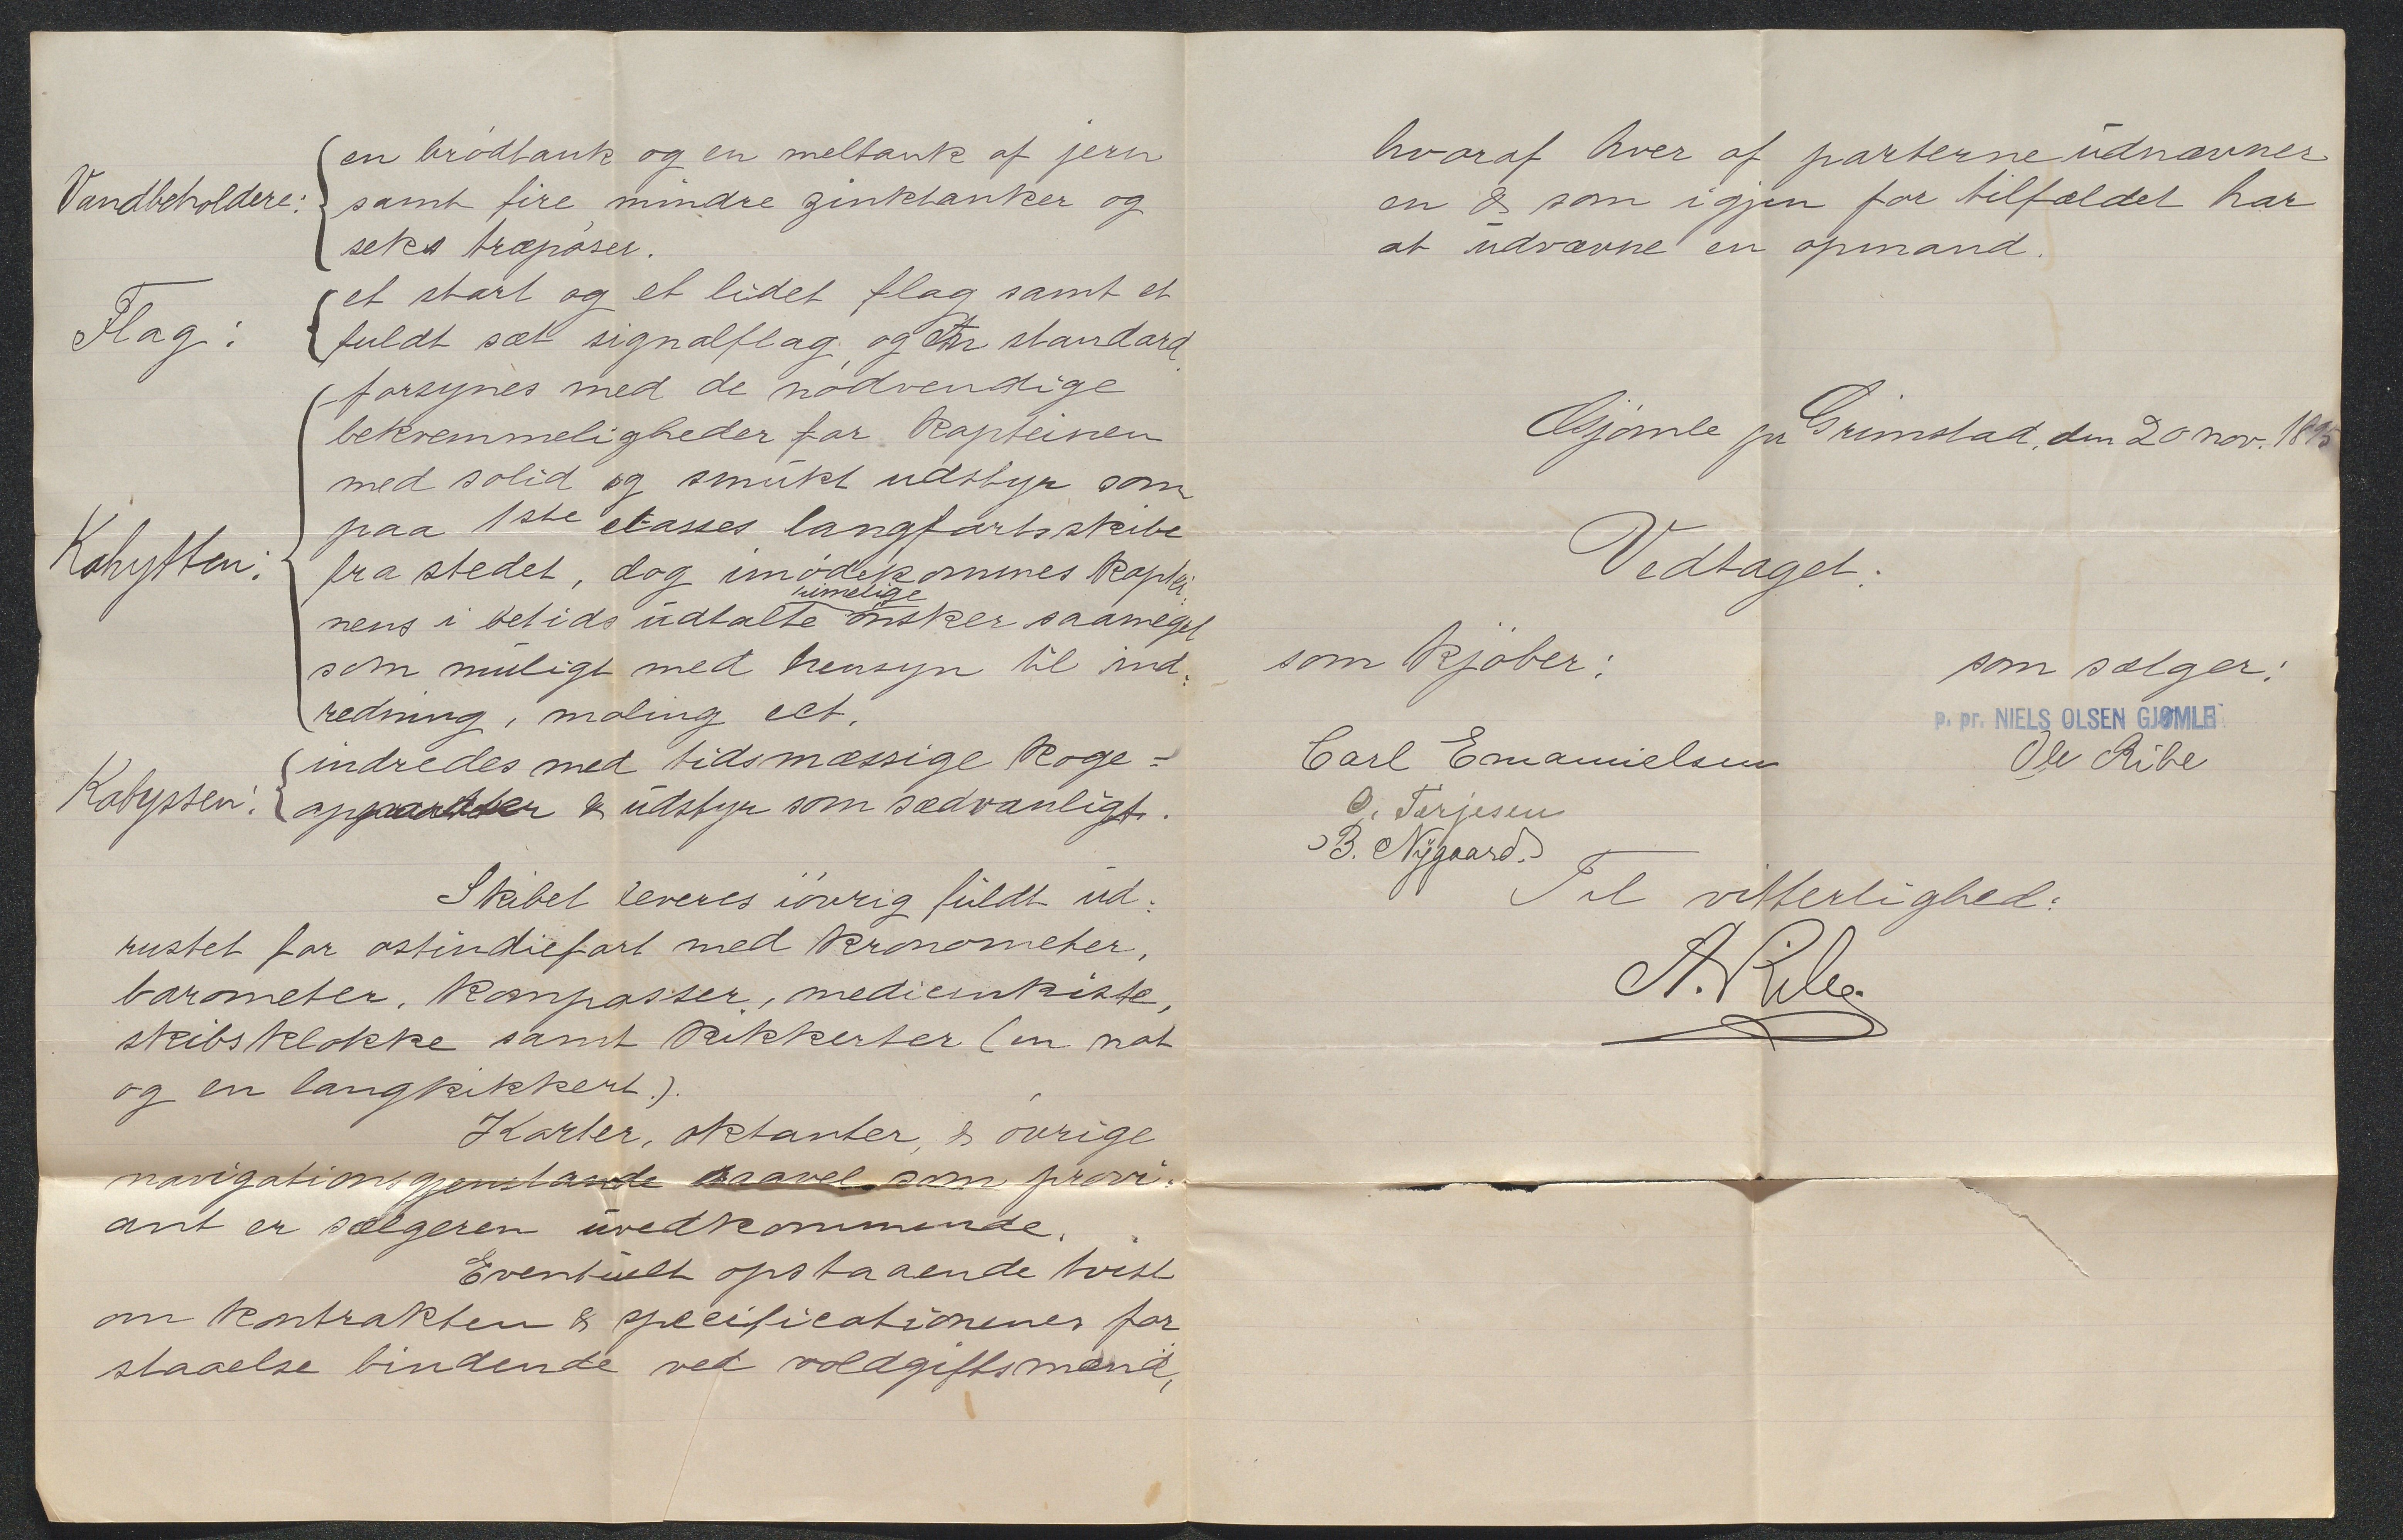 Vandbeholdere:
en brödtank og en meltank af jern
samt fire mindre zinktanker og
seks træpöser.
Flag:
et stort og et lidet flag samt et
fuldt sæt signalflag og en standard
Kahytten:
forsynes med de nödvendige
bekvemmeligheder for kapteinen
med solid og smukt udstyr som
paa 1ste classes langfartsskibe
fra stedet, dog imödekommes kaptei:
rimelige
nens i betids udtalte önsker saameget
som muligt med hensyn til ind:
redning, maling ect.
Kabyssen:
indredes med tidsmæssige koge=
apparater & udstyr som sædvanligt.
Skibet leveres iövrig fuldt ud:
rustet for ostindiefart med kronometer,
barometer, kompasser, medicinkiste,
skibsklokke samt kikkerter (en nat
og en langkikkert).
Karter, oktanter, & övrige
navigationsgjenstande saavel som provi:
ant er sælgeren uvedkommende.
Eventuelt opstaaende tvist
om kontrakten & specificationenes for
staaelse bindende ved voldgiftsmænd,
hvoraf hver af parterne udnævner
en & som igjen for tilfældet har
at udnævne en opmand.
Gjömle pr Grimstad, den 20 nov. 1895
Vedtaget:
som kjöber:
som sælger:
p. pr. NIELS OLSEN GJØMLE
Carl Emanuelsen
Ole Ribe
O. Terjesen
B. Nygaard.
Til vitterlighed:
A. Ribe